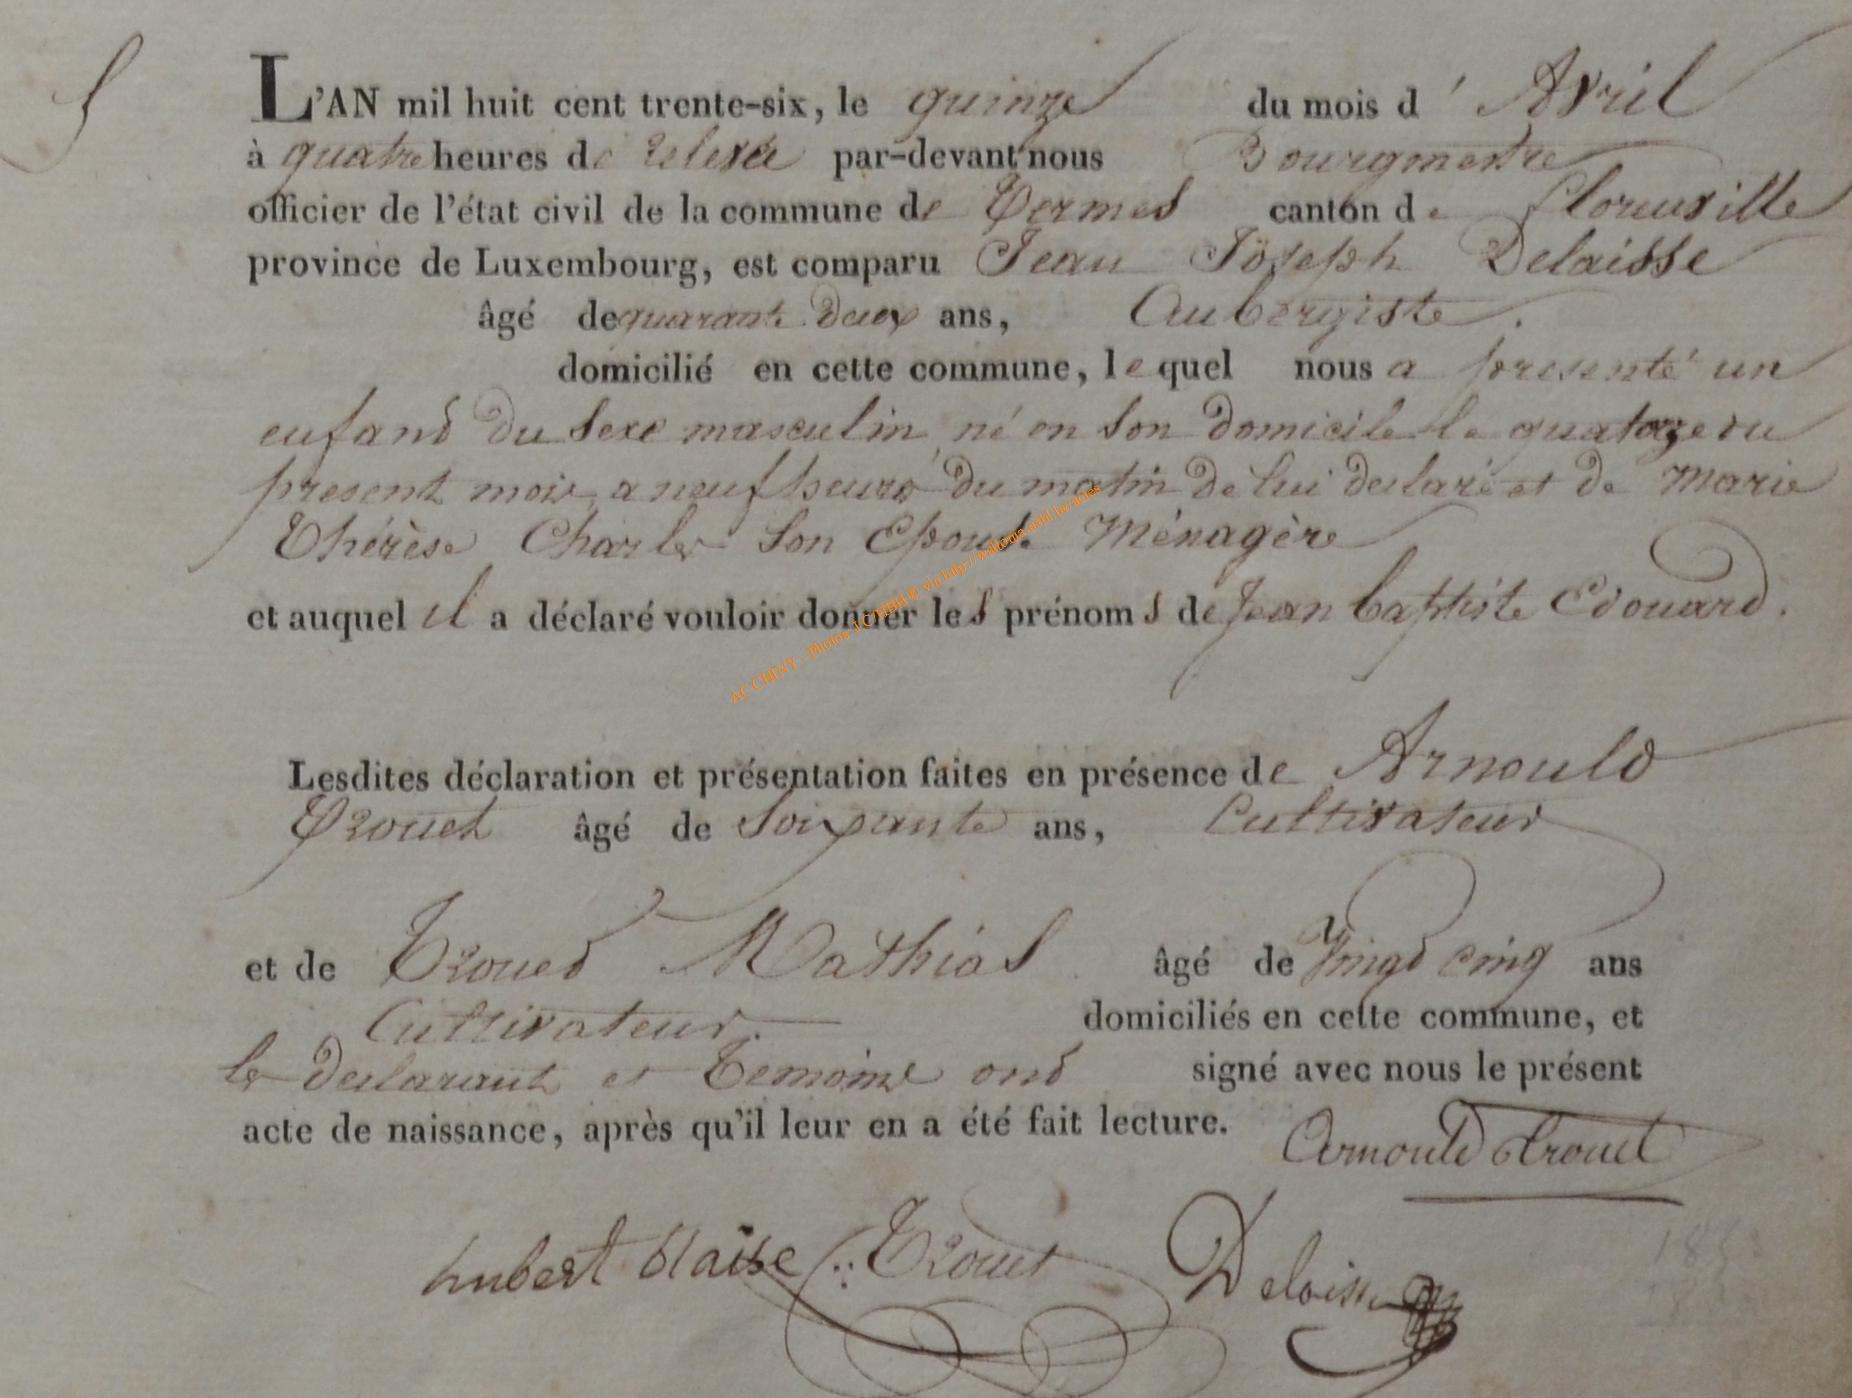 L'AN mil huit cent trente-six, le quinze du mois d' Avril
à quatre heures de relevée par-devant nous Bourgmestre
officier de l'état civil de la commune de Termes canton de Florenville
province de Luxembourg, est comparu Jean Joseph Delaisse
âgé de quarante deux ans, Aubergiste.
domicilié en cette commune, lequel nous a presenté un
enfand du sexe masculin, né en son domicile le quatorze du
present mois, a neuf heures du matin de lui declaré et de Marie
Thérèse Charles son Epouse Ménagère
et auquel il a déclaré vouloir donner les prénoms de Jean baptiste Edouard.
Lesdites déclaration et présentation faites en présence de Arnould
Trouet âgé de soixante ans, Cultivateur
et de Troued Mathias âgé de Vingd cinq ans
Cultivateur. domiciliés en cette commune, et
le declarant et Temoins ond signé avec nous le présent
acte de naissance, après qu'il leur en a été fait lecture.
Arnould trouet
hubert blaise Trouet Delaisse